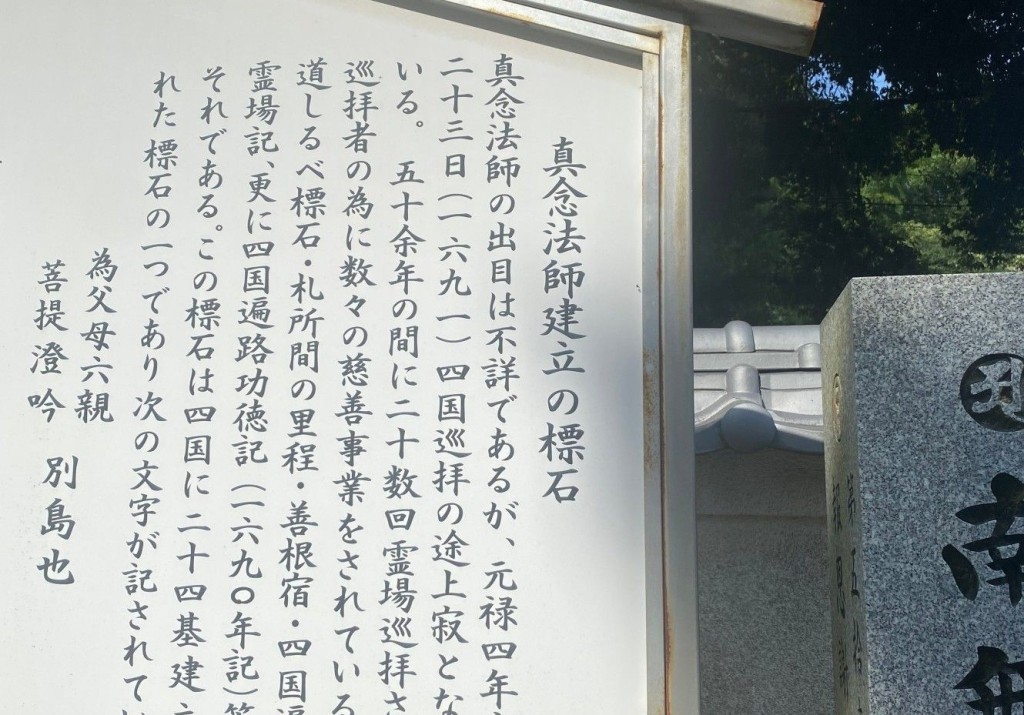 真念法師建立の標石
真念法師の出目は不詳であるが、元禄四年
二十三日(一六九一)四国巡拝の途上寂とな
いる。 五十余年の間に二十数回霊場巡拝さ
巡拝者の為に数々の慈善事業をされている
道しるべ標石・札所間の里程・善根宿・四国
霊場記、更に四国遍路功徳記(一六九〇年記)
それである。この標石は四国に二十四基建
れた標石の一つであり次の文字が記されて
為父母六親
菩提澄吟
別島也
南無